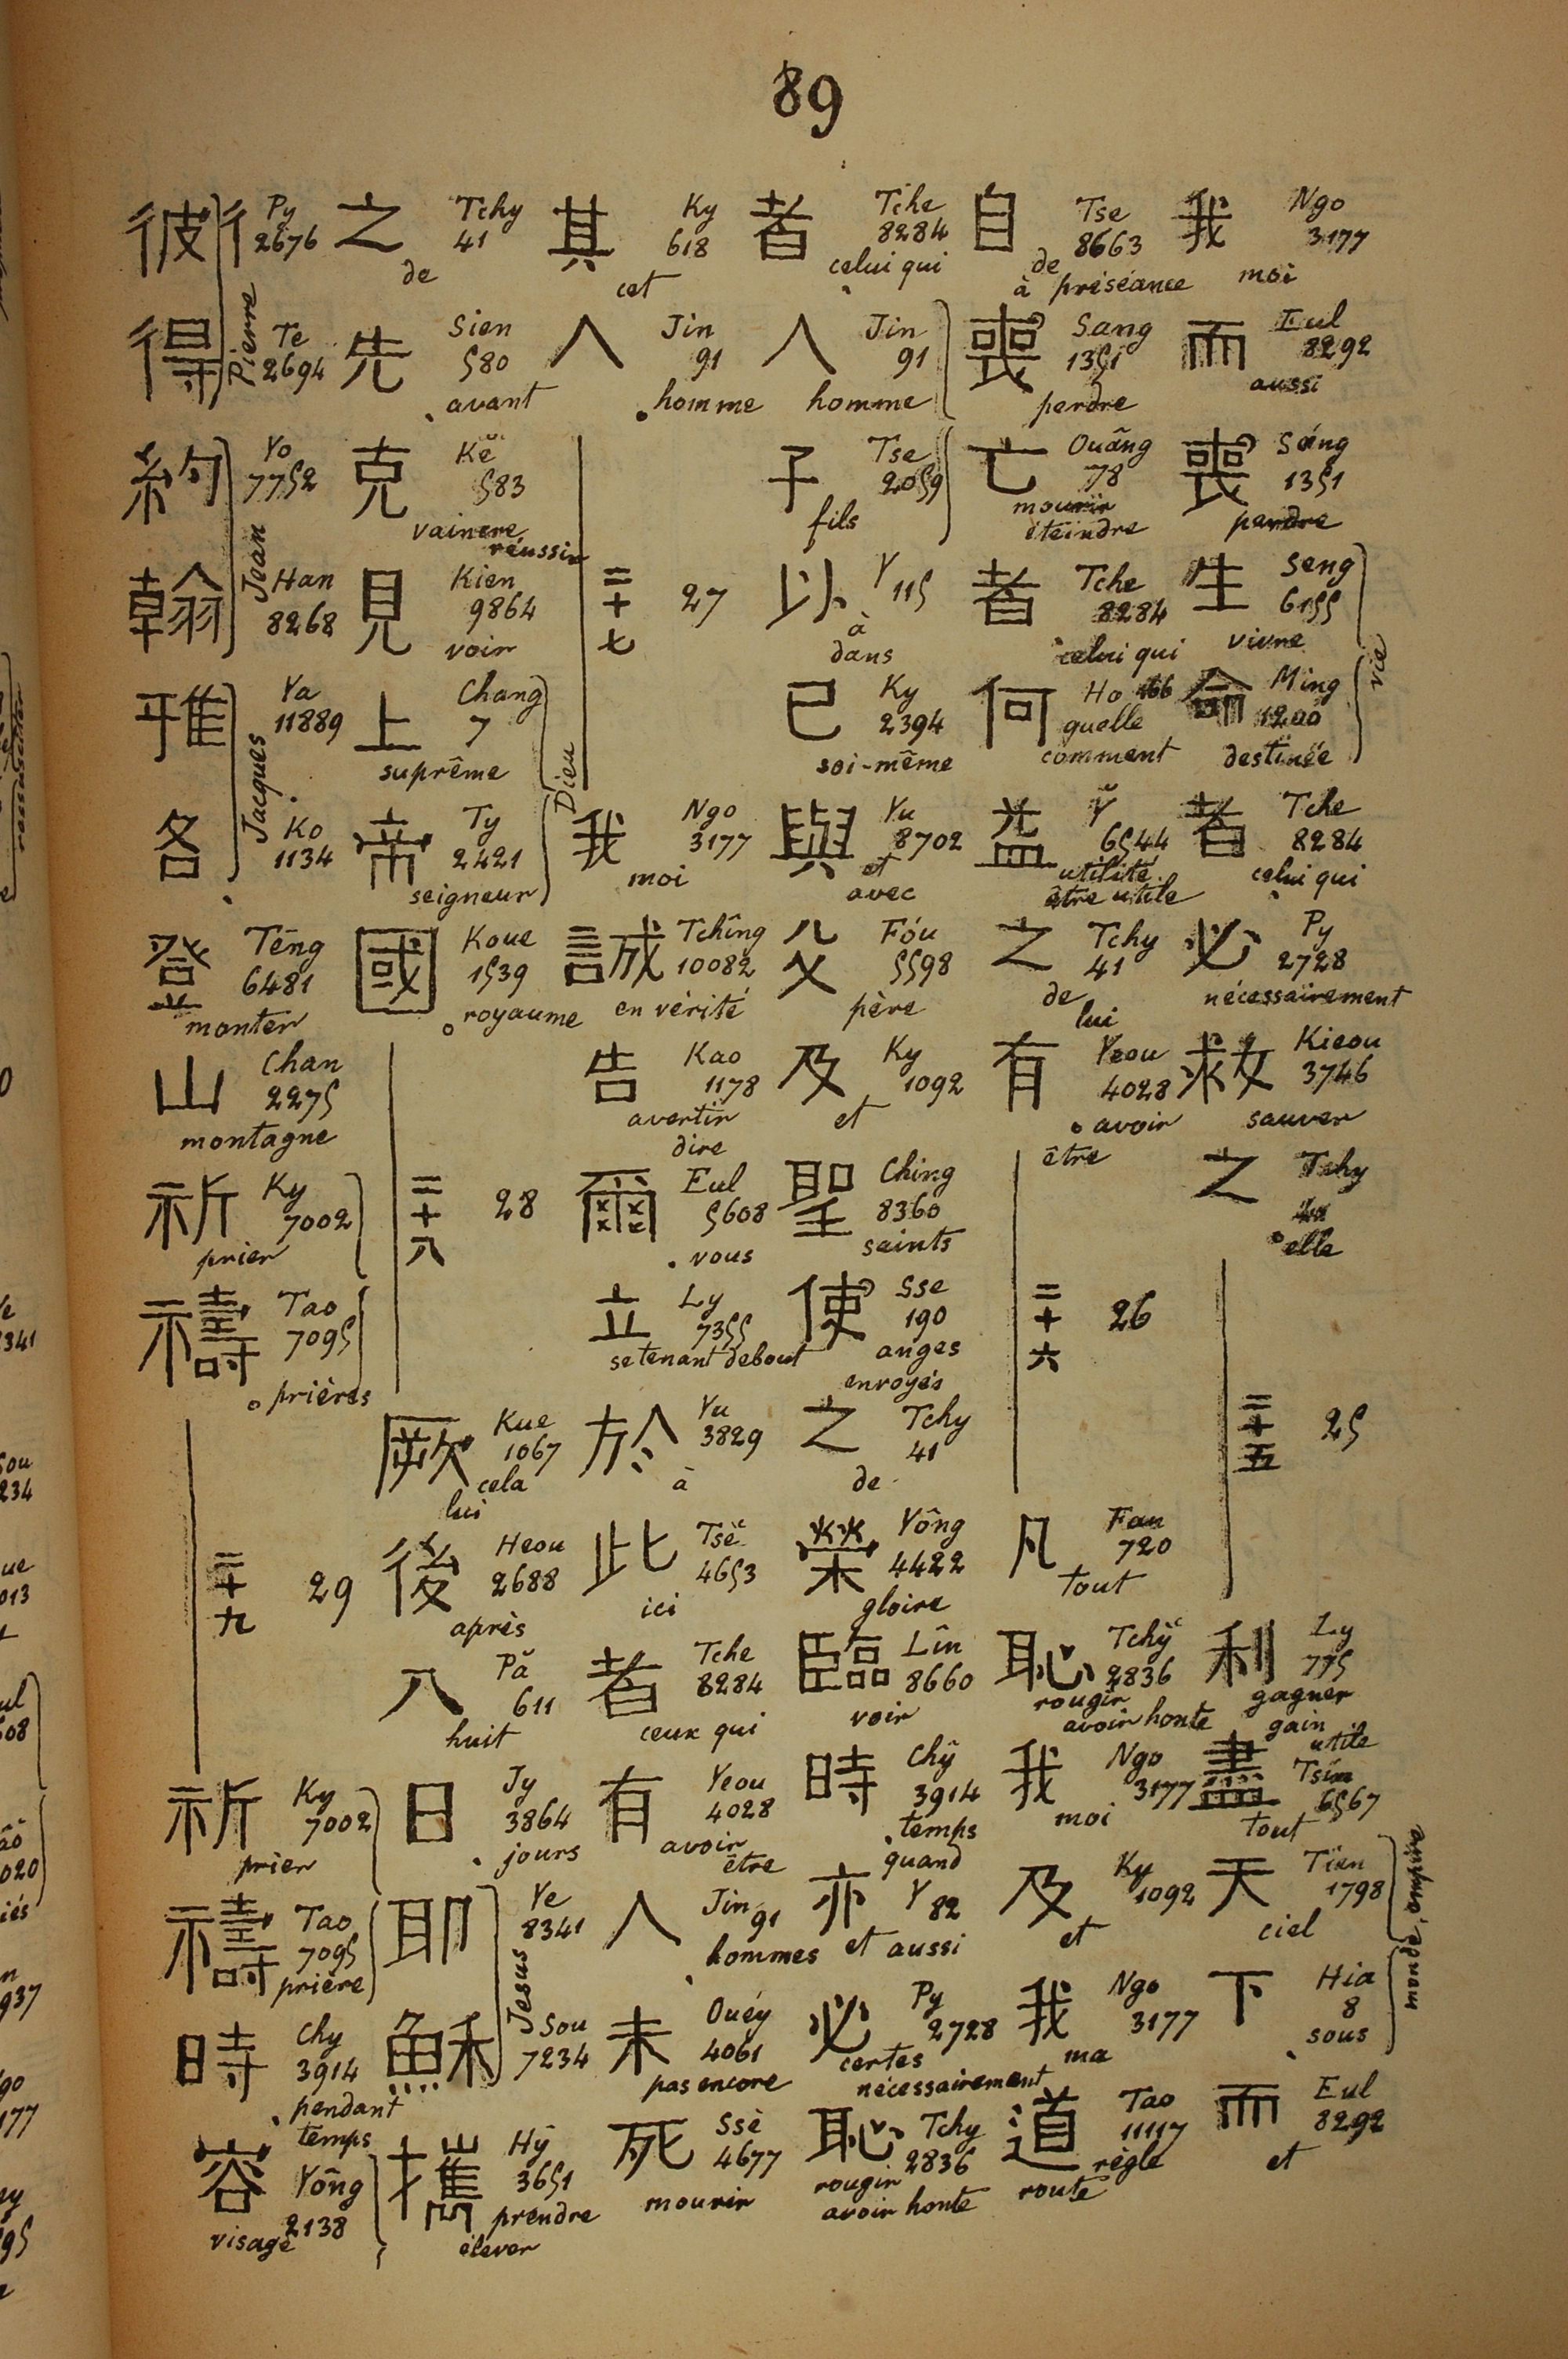 89
我 Ngo 3177 moi
而 Eul 8292 aussi
喪 Sáng 1351 perdre
生 Seng 6155 vivre
命 Ming 1200 destinée
vie
者 Tche 8284 celui qui
必 Py 2728 nécessairement
救 Kieou 3746 sauver
之 Tchy elle
二十五 25
利 Ly 775 gagner gain utile
盡 Tsín 6567 tout
天 Tien 1798 ciel
下 Hia 8 sous
monde, empire
而 Eul 8292 et
自 Tse 8663 de à préséance
喪 Sang 1351 perdre
亡 Ouâng 78 mourir éteindre
者 Tche 8284 celui qui
何 Ho 166 quelle comment
益 Y 6544 utilité être utile
之 Tchy 41 de lui
有 Yeou 4028 avoir être
二十六 26
凡 Fan 720 tout
恥 Tchy 2836 rougir avoir honte
我 Ngo 3177 moi
及 Ky 1092 et
我 Ngo 3177 ma
道 Tao 11117 règle route
者 Tche 8284 celui qui
人 Jin 91 homme
子 Tse 2059 fils
以 Y 115 à dans
已 Ky 2394 soi-même
與 Yu 8702 et avec
父 Fóu 5598 père
及 Ky 1092 et
聖 Ching 8360 saints
使 Sse 190 anges envoyés
之 Tchy 41 de
榮 Yông 4422 gloire
臨 Lîn 8660 voir
時 Chŷ 3914 temps quand
亦 Y 82 et aussi
必 Py 2728 certes nécessairement
恥 Tchy 2836 rougir avoir honte
其 Ky 618 cet
人 Jin 91 homme
二十七 27
我 Ngo 3177 moi
誠 Tchîng 10082 en vérité
告 Kao 1178 avertir dire
爾 Eul 5608 vous
立 Ly 7355 se tenant debout
於 Yu 3829 à
此 Tsĕ 4653 ici
者 Tche 8284 ceux qui
有 Yeou 4028 avoir être
人 Jin 91 hommes
未 Ouéy 4061 pas encore
死 Ssè 4677 mourir
之 Tchy 41 de
先 Sien 580 avant
克 Kĕ 583 vaincre réussir
見 Kien 9864 voir
上 Chang 7 suprême
帝 Ty 2421 seigneur
Dieu
國 Koue 1539 royaume
二十八 28
厥 Kue 1067 cela lui
後 Heou 2688 après
八 Pă 611 huit
日 Jy 3864 jours
耶 Ye 8341
穌 Sou 7234
Jesus
攜 Hŷ 3651 prendre élever
彼 彳 Py 2676
得 Te 2694
Pierre
約 Yo 7752
翰 Han 8268
Jean
雅 Ya 11889
各 Ko 1134
Jacques
登 Tēng 6481 monter
山 Chan 2275 montagne
祈 Ky 7002 prier
禱 Tao 7095 prières
二十九 29
祈 Ky 7002 prier
禱 Tao 7095 prière
時 Chy 3914 pendant temps
容 Yông 2138 visage